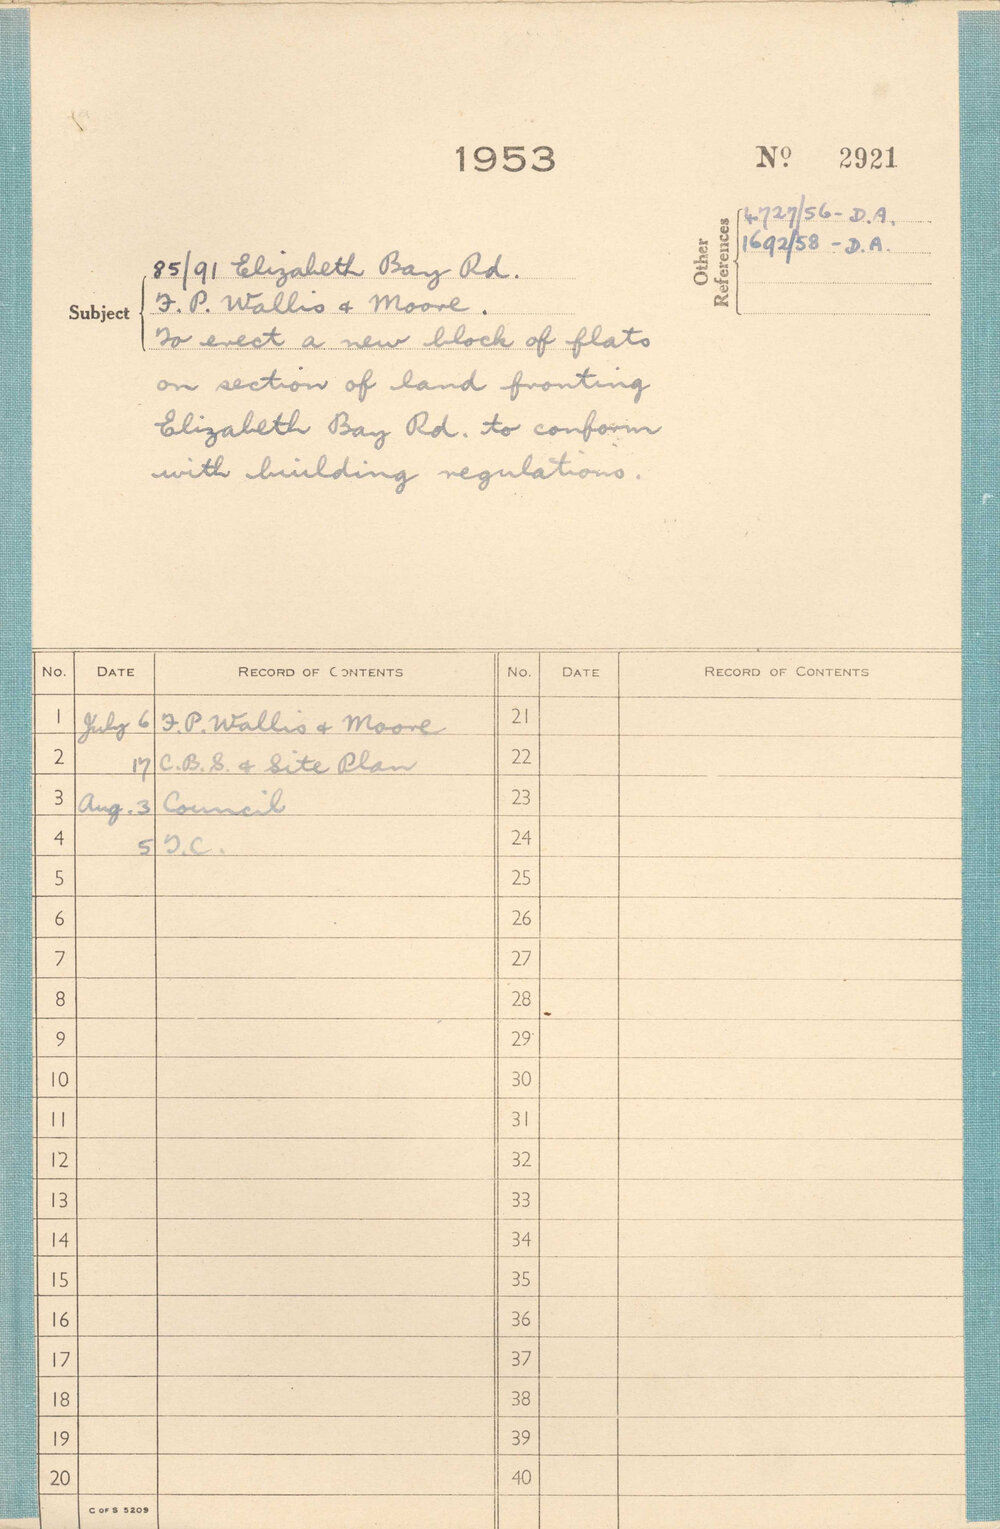 1953
No 2921
Other References
4727/56 - D.A.
1692/58 - D.A.
Subject
85/91 Elizabeth Bay Rd.
F. P. Wallis & Moore.
To erect a new block of flats
on section of land fronting
Elizabeth Bay Rd. to conform
with building regulations.
No. DATE RECORD OF CONTENTS No. DATE RECORD OF CONTENTS
1 July 6 F.P. Wallis & Moore 21
2 17 C.B.S. & Site Plan 22
3 Aug. 3 Council 23
4 5 T.C. 24
5 25
6 26
7 27
8 28
9 29
10 30
11 31
12 32
13 33
14 34
15 35
16 36
17 37
18 38
19 39
20 40
C OF S 5209